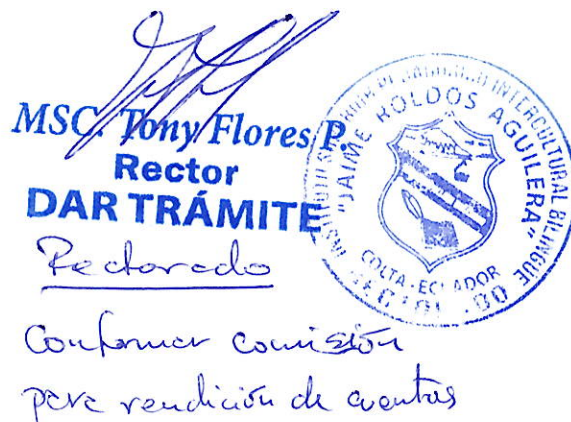 MSC. Tony Flores P.
Rector
DAR TRÁMITE
Rectorado
Conformar comisión
para rendición de cuentas
INTERCULTURAL BILINGUE
"JAIME ROLDOS AGUILERA"
COLTA - ECUADOR